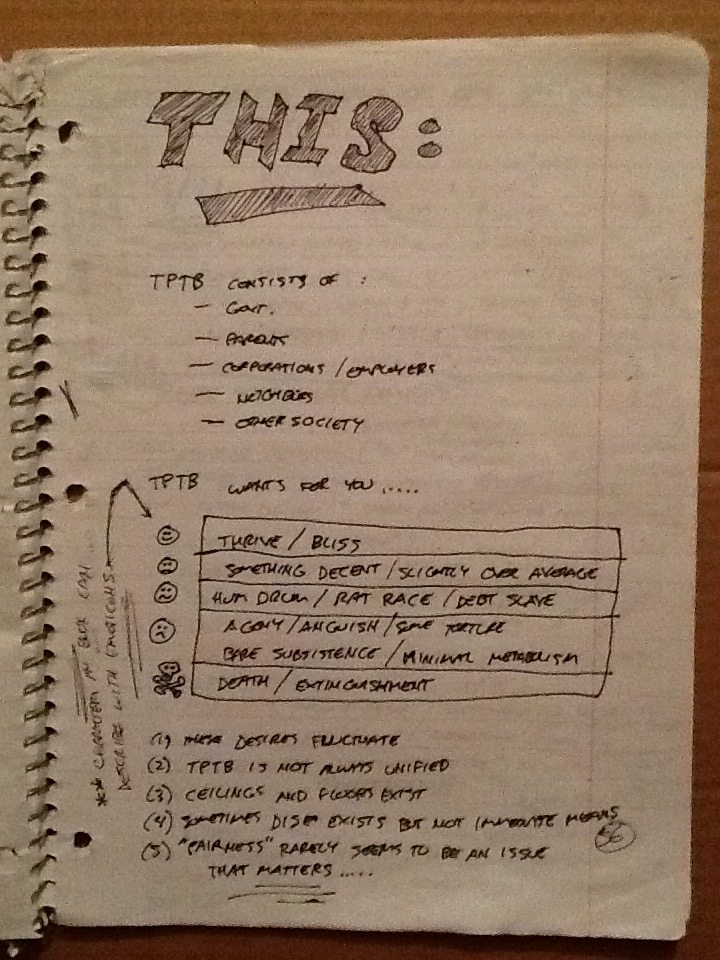 THIS:
TPTB CONSISTS OF :
— GOVT.
— PARENTS
— CORPORATIONS / EMPLOYERS
— NEIGHBORS
— OTHER SOCIETY
TPTB WANTS FOR YOU .....
THRIVE / BLISS
SOMETHING DECENT / SLIGHTLY OVER AVERAGE
HUM DRUM / RAT RACE / DEBT SLAVE
AGONY / ANGUISH / SOME TORTURE
BARE SUBSISTENCE / MINIMAL METABOLISM
DEATH / EXTINGUISHMENT
(1) THESE DESIRES FLUCTUATE
(2) TPTB IS NOT ALWAYS UNIFIED
(3) CEILINGS AND FLOORS EXIST
(4) SOMETIMES EXISTS BUT NOT IMMEDIATE MEANS
(5) "FAIRNESS" RARELY SEEMS TO BE AN ISSUE
THAT MATTERS .....
56
CHARACTERS IN BOOK CAN
DESCRIBED WITH EMOTICONS